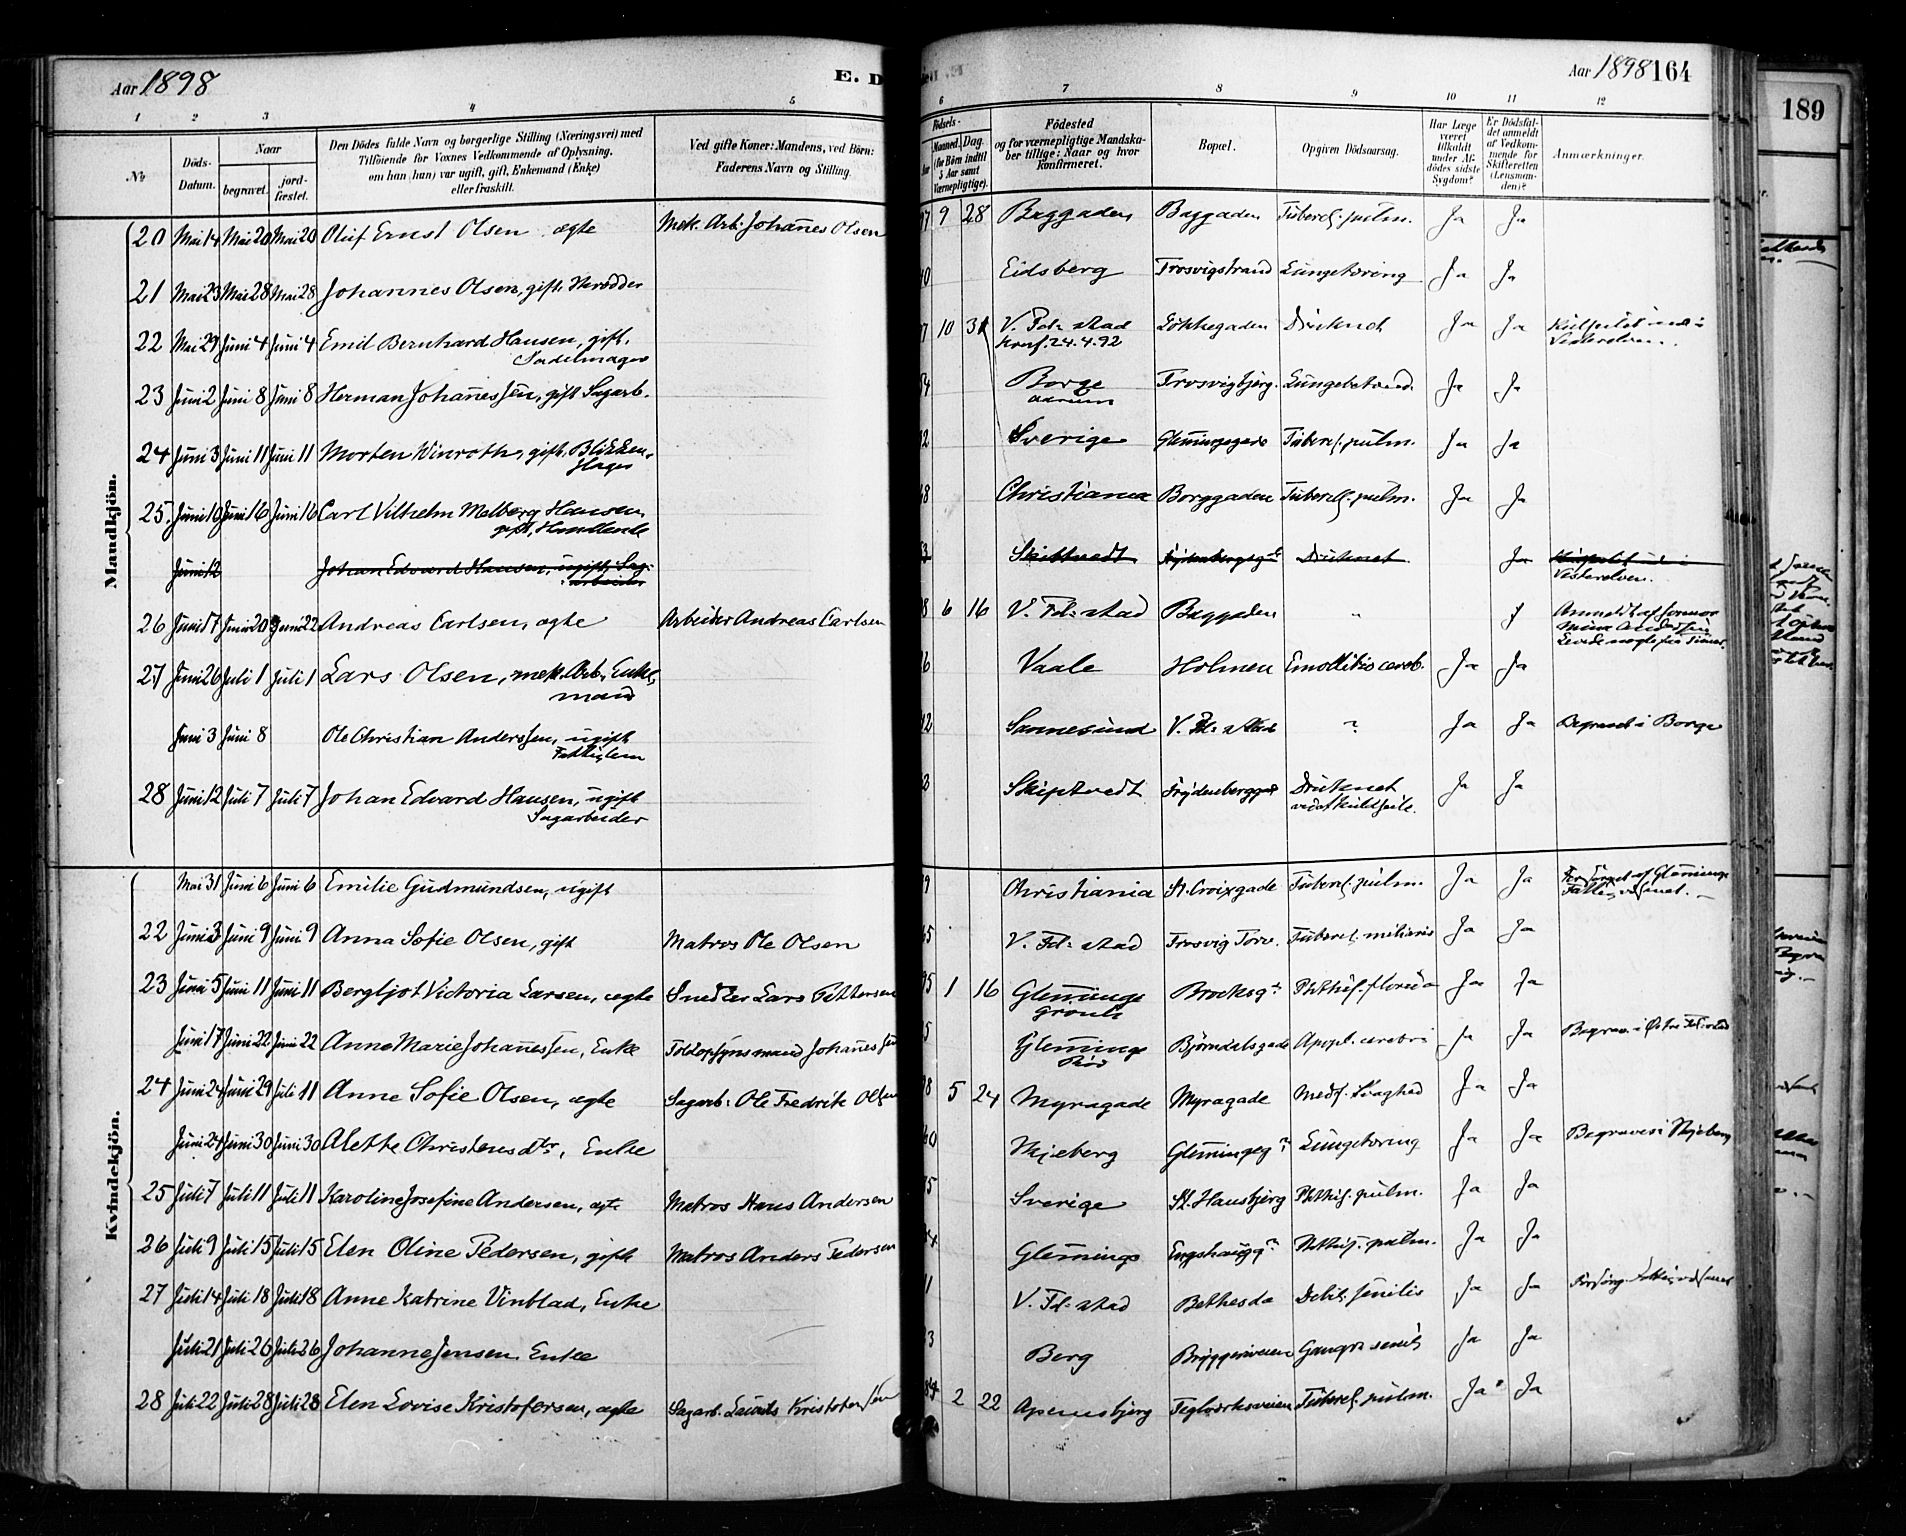 Aar 1898
E. D
Aar 1898 164
189
1 2 3 4 5 6 7 8 9 10 11 12
No
Döds-Datum.
Naar
begravet.
jord-fæstet.
Den Dödes fulde Navn og borgerlige Stilling (Næringsvei) med
Tilföiende for Voxnes Vedkommende af Oplysning,
om han (hun) var ugift, gift, Enkemand (Enke)
eller fraskilt.
Ved gifte Koner: Mandens, ved Börn:
Faderens Navn og Stilling.
Födsels-
Maaned. Dag.
(for Börn indtil
5 Aar samt
Værnepligtige).
Födested
og for værnepligtige Mandska-
ber tillige: Naar og hvor
konfirmeret.
Bopæl.
Opgiven Dödsaarsag.
Har Læge
været
tilkaldt
under Af-
dödes sidste
Sygdom?
Er Dödsfal-
det anmeldt
af Vedkom-
mende for
Skifteretten
(Lensman-
den)?
Anmærkninger.
Mandkjön.
20 Mai 14 Mai 20 Mai 20 Oluf Ernst Olsen ægte Mek. Arb. Johanes Olsen 9 28 Baggaden Baggaden Tuberc. pulm. Ja Ja
21 Mai 23 Mai 28 Mai 28 Johannes Olsen, gift. Eidsberg Trosvigstrand Lungetæring Ja Ja
22 Mai 29 Juni 4 Juni 4 Emil Bernhard Hansen, gift. 10 31 V. Fd:stad Lökkegaden Druknet Ja Ja
Sadelmager Konf. 24.4.92 Vesterelven.
23 Juni 2 Juni 8 Juni 8 Herman Johanessen, gift Sagarb. Borge Trosvigbjerg. Lungebetænd. Ja Ja
24 Juni 3 Juni 11 Juni 11 Morten Winroth, gift. Blikken- Sverige Glemmegade Tuberc. pulm. Ja Ja
slager
25. Juni 10 Juni 16 Juni 16 Carl Vilhelm Melberg Hansen, Christiania Borggaden Tuberc. pulm. Ja Ja
gift, Handlende
Juni 12 Johan Edvard Hansen, ugift, Sag- Druknet Ja
arbeider Vesterelven.
26 Juni 17 Juni 20 Juni 22 Andreas Carlsen, ægte Arbeider Andreas Carlsen 6 16 V. Fd:stad Baggaden " Anmeldt af Jormor
27 Juni 26 Juli 1 Juli 1 Lars Olsen, mek. Arb., Enke- Vaale Holmen Emollitis cereb. Ja Ja
mand
Juni 3 Juni 8 Ole Christian Anderssen, ugift Sannesund V. Fd:stad ? Ja Ja Begravet i Borge
Fattiglem
28 Juni 12 Juli 7 Juli 7 Johan Edvard Hansen, ugift Skiptvedt Druknet Ja Ja
Sagarbeider
Kvindekjön.
Mai 31 Juni 6 Juni 6 Emilie Gudmundsen, ugift Christiania St. Croixgade Tuberc. pulm. Ja Ja Forsörget af Glemminge
Fattigvæsenet.
22 Juni 3 Juni 9 Juni 9 Anna Sofie Olsen, gift Matros Ole Olsen V. Fd:stad Trosvig Torv. Tuberc. miliaris Ja Ja
23 Juni 5 Juni 11 Juni 11 Bergljot Victoria Larsen, ægte Snedker Lars Pettersen 1 16 Glemminge Brocksgt Phthis. florida Ja Ja
Juni 17 Juni 22 Juni 22 Anne Marie Johanessen, Enke Toldopsynsmand Johanessen Glemminge Björndalsgade Appl. cerebri Ja Ja Begrav. i Østre Fd:stad
24 Juni 24 Juni 29 Juli 11 Anne Sofie Olsen, ægte Sagarb: Ole Fredrik Olsen 5 24 Myragade Myragade Medf. Svaghed Ja Ja
Juni 24 Juni 30 Juni 30 Alette Christensdtr, Enke Skjeberg Glemmegt Lungetæring Ja Ja Begraves i Skjeberg
25 Juli 7 Juli 11 Juli 11 Karoline Josefine Andersen, ægte Matros Hans Andersen Sverige St. Hansbjerg Phthis. pulm. Ja Ja
26 Juli 9 Juli 15 Juli 15 Elen Oline Pedersen, gift Matros Anders Pedersen Glemminge Engshauggt Phthis. pulm. Ja Ja
27 Juli 14 Juli 18 Juli 18 Anne Katrine Vinblad, Enke V. Fd:stad Bethesda Debil. senilis Ja Ja Forsörg. Fattigvæsenet
Juli 21 Juli 26 Juli 26 Johanne Jensen. Enke Berg Bryggeriveien Gangr. senil. Ja Ja
28 Juli 22 Juli 28 Juli 28 Elen Lovise Kristofersen, ægte Sagarb. Kristofersen 2 22 Apenesbjerg Teglværksveien Tuberc. pulm. Ja Ja